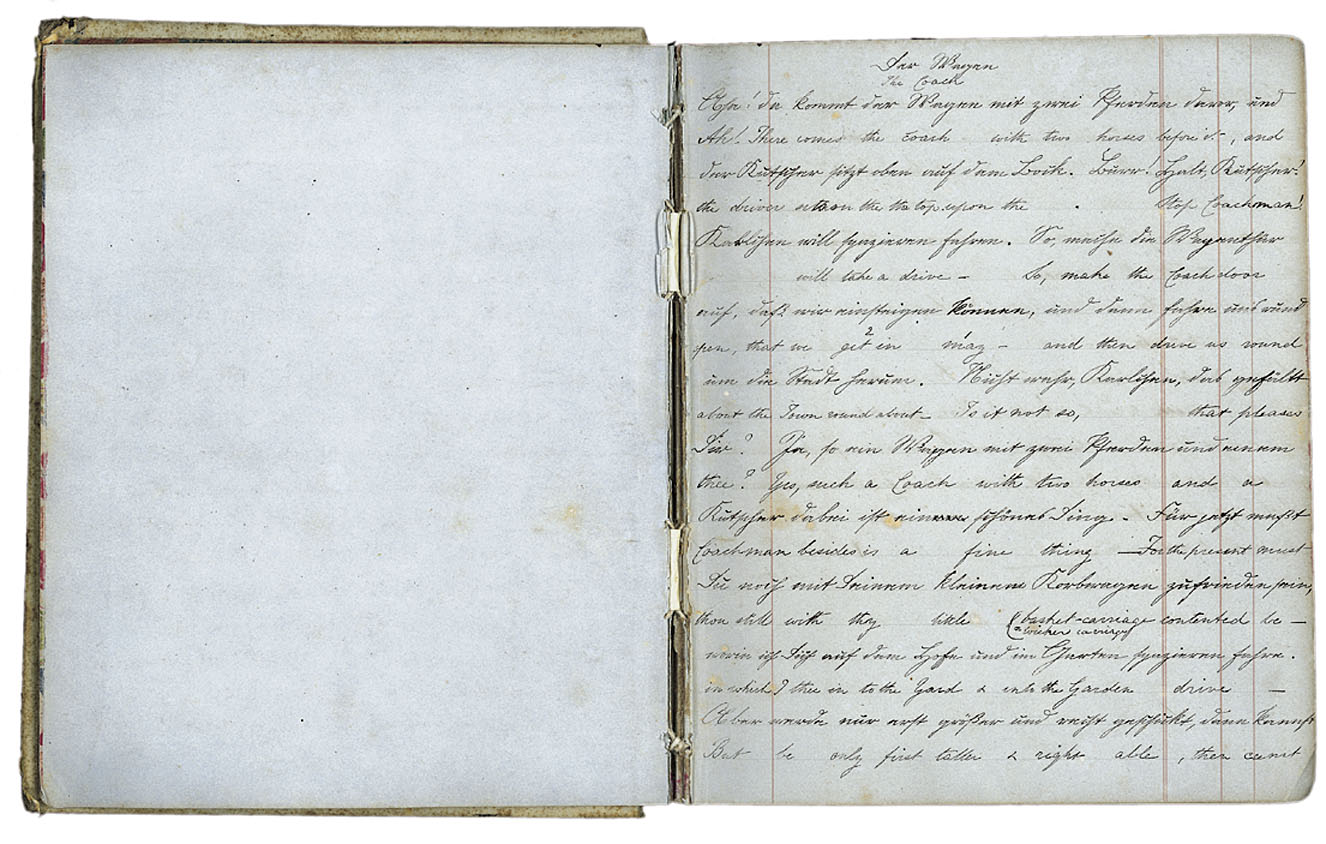 Der Wagen
The Coach
Aha! da kommt der Wagen mit zwei Pferden davor, und
Ah! There comes the coach with two horses before it, and
der Kutscher sitzt oben auf dem Bock. Burr! Halt, Kutscher!
the driver the the top upon the Stop Coachman!
Karlchen will spazieren fahren. So, mache die Wagenthür
will take a drive – So, make the Coach door
auf, daß wir einsteigen können, und dann fahre uns rund
open, that we get in may – and then drive us round
um die Stadt herum. Nicht wahr, Karlchen, das gefällt
about the Town round about – Is it not so, that pleases
Dir? Ja, so ein Wagen mit zwei Pferden und einem
thee? Yes, such a Coach with two horses and a
Kutscher dabei ist ein schönes Ding. Für jetzt mußt
Coachman besides is a fine thing – For the present must
Du noch mit Deinem kleinen Korbwagen zufrieden sein,
thou still with thy little basket-carriage contented be –
wicker carriage
worin ich Dich auf dem Hofe und im Garten spazieren fahre.
in which I thee in to the Yard & into the Garden drive –
Aber werde nur erst größer und recht geschickt, dann kannst
But be only first taller & right able, then canst